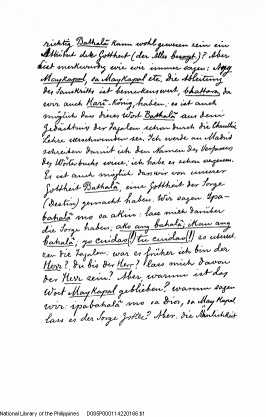 richtig Bathalà kann wohl gewesen sein ein
Attribut der Gottheit (der alles besorgt)? Aber
ist merkwürdig wie wir immer sagen: Ang
Maykapal, sa Maykapal etc. die Ableitung
des Sanskrits ist bemerkenswert, bhattara, da
wir auch Hari - König, haben, es ist auch
möglich dass dieses Wort Bathalà aus dem
Gedächtnis der Tagalen schon durch die Christl.
Lehre verschwunden ist. Ich werde an Madrid
schreiben damit ich den Namen des Verfassers
des Wörterbuchs weiss, ich habe es schon vergessen.
Es ist auch möglich dass wir von unserer
Gottheit Bathalà, eine Gottheit der Sorge
(Destin) gemacht haben. Wir sagen Ipa-
bahalà mo sa akin: lass mich darüber
die Sorge haben, ako ang bahalà, ikaw ang
bahalà; yo cuidao(!) tu cuidao(!)
en die Tagalen. war es früher ich bin der
Herr? Du bist der Herr? lass mich davon
der Herr sein? Aber warum ist das
Wort MayKapal geblieben? warum sagen
wir ipabahalà mo sa Dios, sa MayKapal
lass es der Sorge Gottes? Aber die Ähnlichkeit
National Library of the Philippines